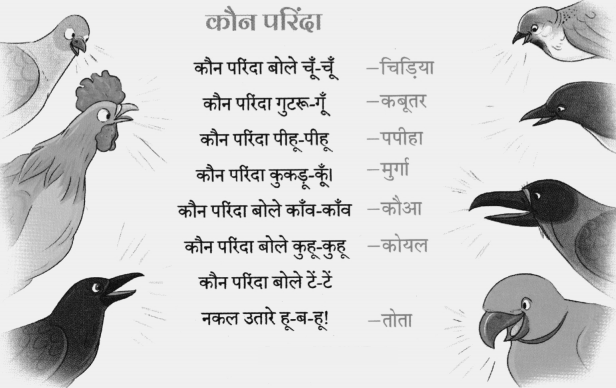 कौन परिंदा
कौन परिंदा बोले चूँ-चूँ –चिड़िया
कौन परिंदा गुटरू-गूँ –कबूतर
कौन परिंदा पीहू-पीहू –पपीहा
कौन परिंदा कुकड़ू-कूँ। –मुर्गा
कौन परिंदा बोले काँव-काँव –कौआ
कौन परिंदा बोले कुहू-कुहू –कोयल
कौन परिंदा बोले टें-टें
नकल उतारे हू-ब-हू! –तोता